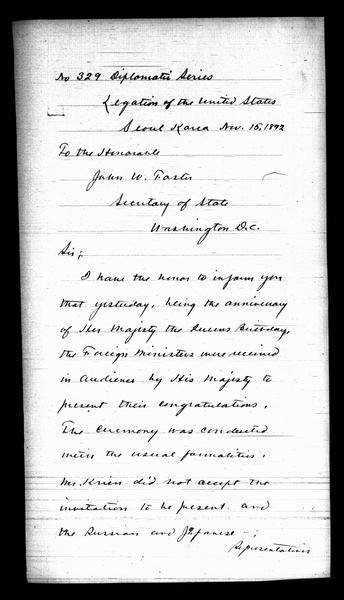 No 329 Diplomatic Series
Legation of the United States
Seoul Korea Nov. 15, 1892
To the Honorable
John W. Foster
Secretary of State
Washington D.C.
Sir;
I have the honor to inform you
that yesterday, being the anniversary
of Her Majesty the Queens Birthday,
the Foreign Ministers were received
in audience by His Majesty to
present their congratulations.
The ceremony was conducted
with the usual formalities.
Mr. Krien did not accept the
invitation to be present and
the Russian and Japanese
Representatives